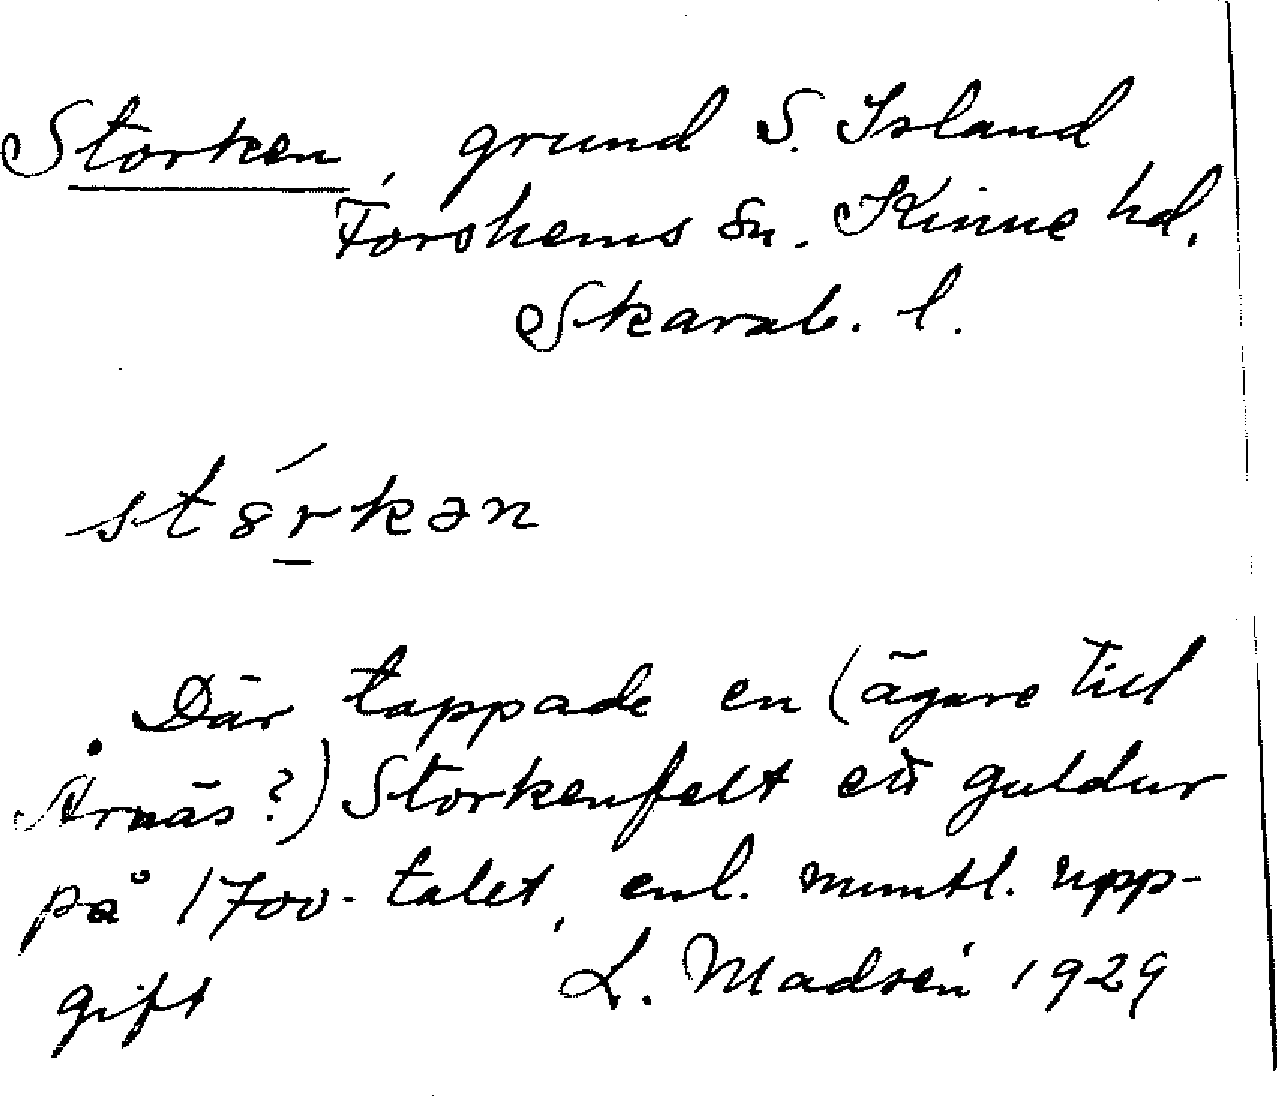 Storken, grund S. Island
Forshems sn. Kinne hd.
Skarab. l.
stȣ́rkən
Där tappade en (ägare till
Årnäs?) Storkenfelt ett guldur
på 1700-talet, enl. muntl. upp-
gift L. Madsén 1929